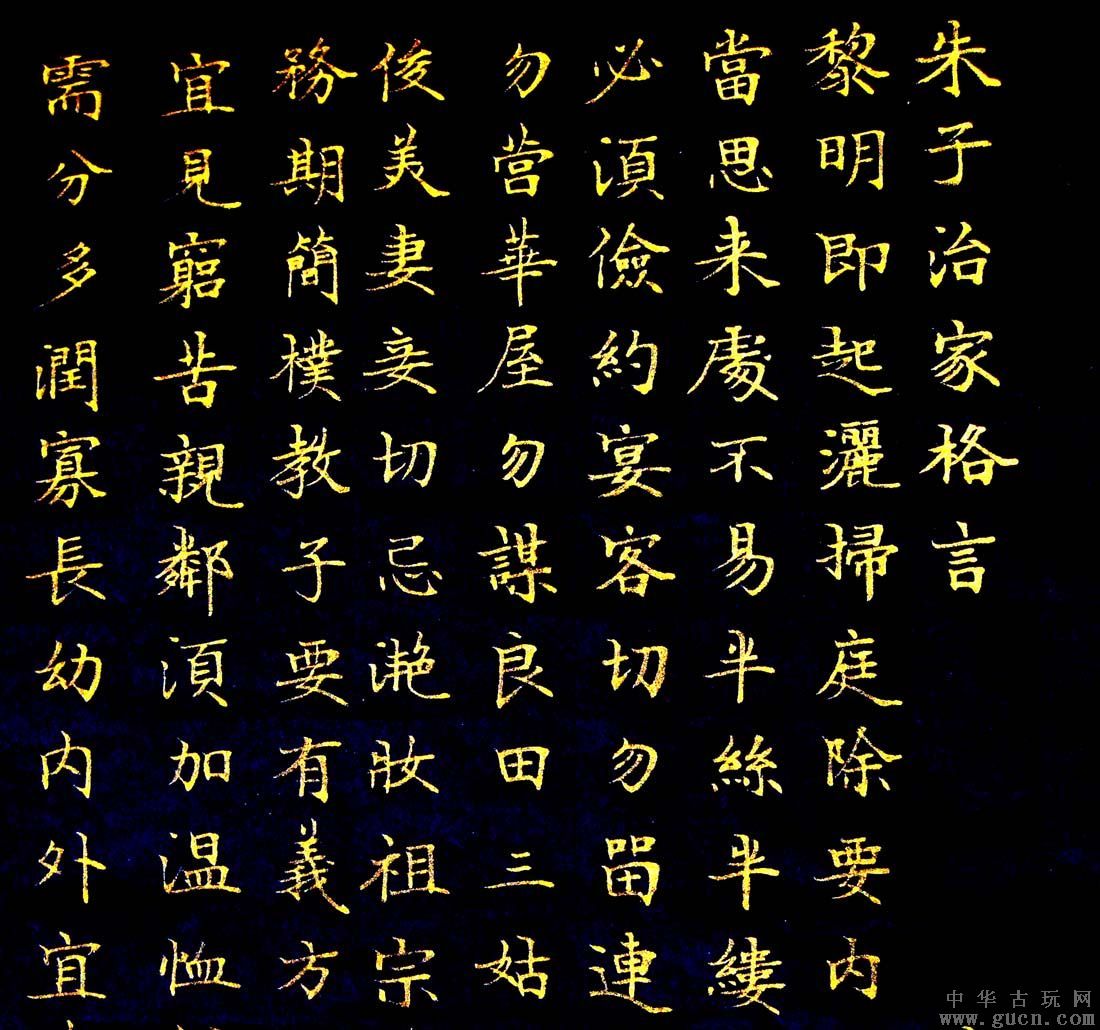 朱子治家格言
黎明即起灑掃庭除要內
當思来處不易半絲半縷
必須儉約宴客切勿畱連
勿営華屋勿謀良田三姑
俊美妻妾切忌灎妝祖宗
務期簡樸教子要有義方
宜見窮苦親鄰須加温恤
需分多潤寡長幼內外宜
中华古玩网
www.gucn.com